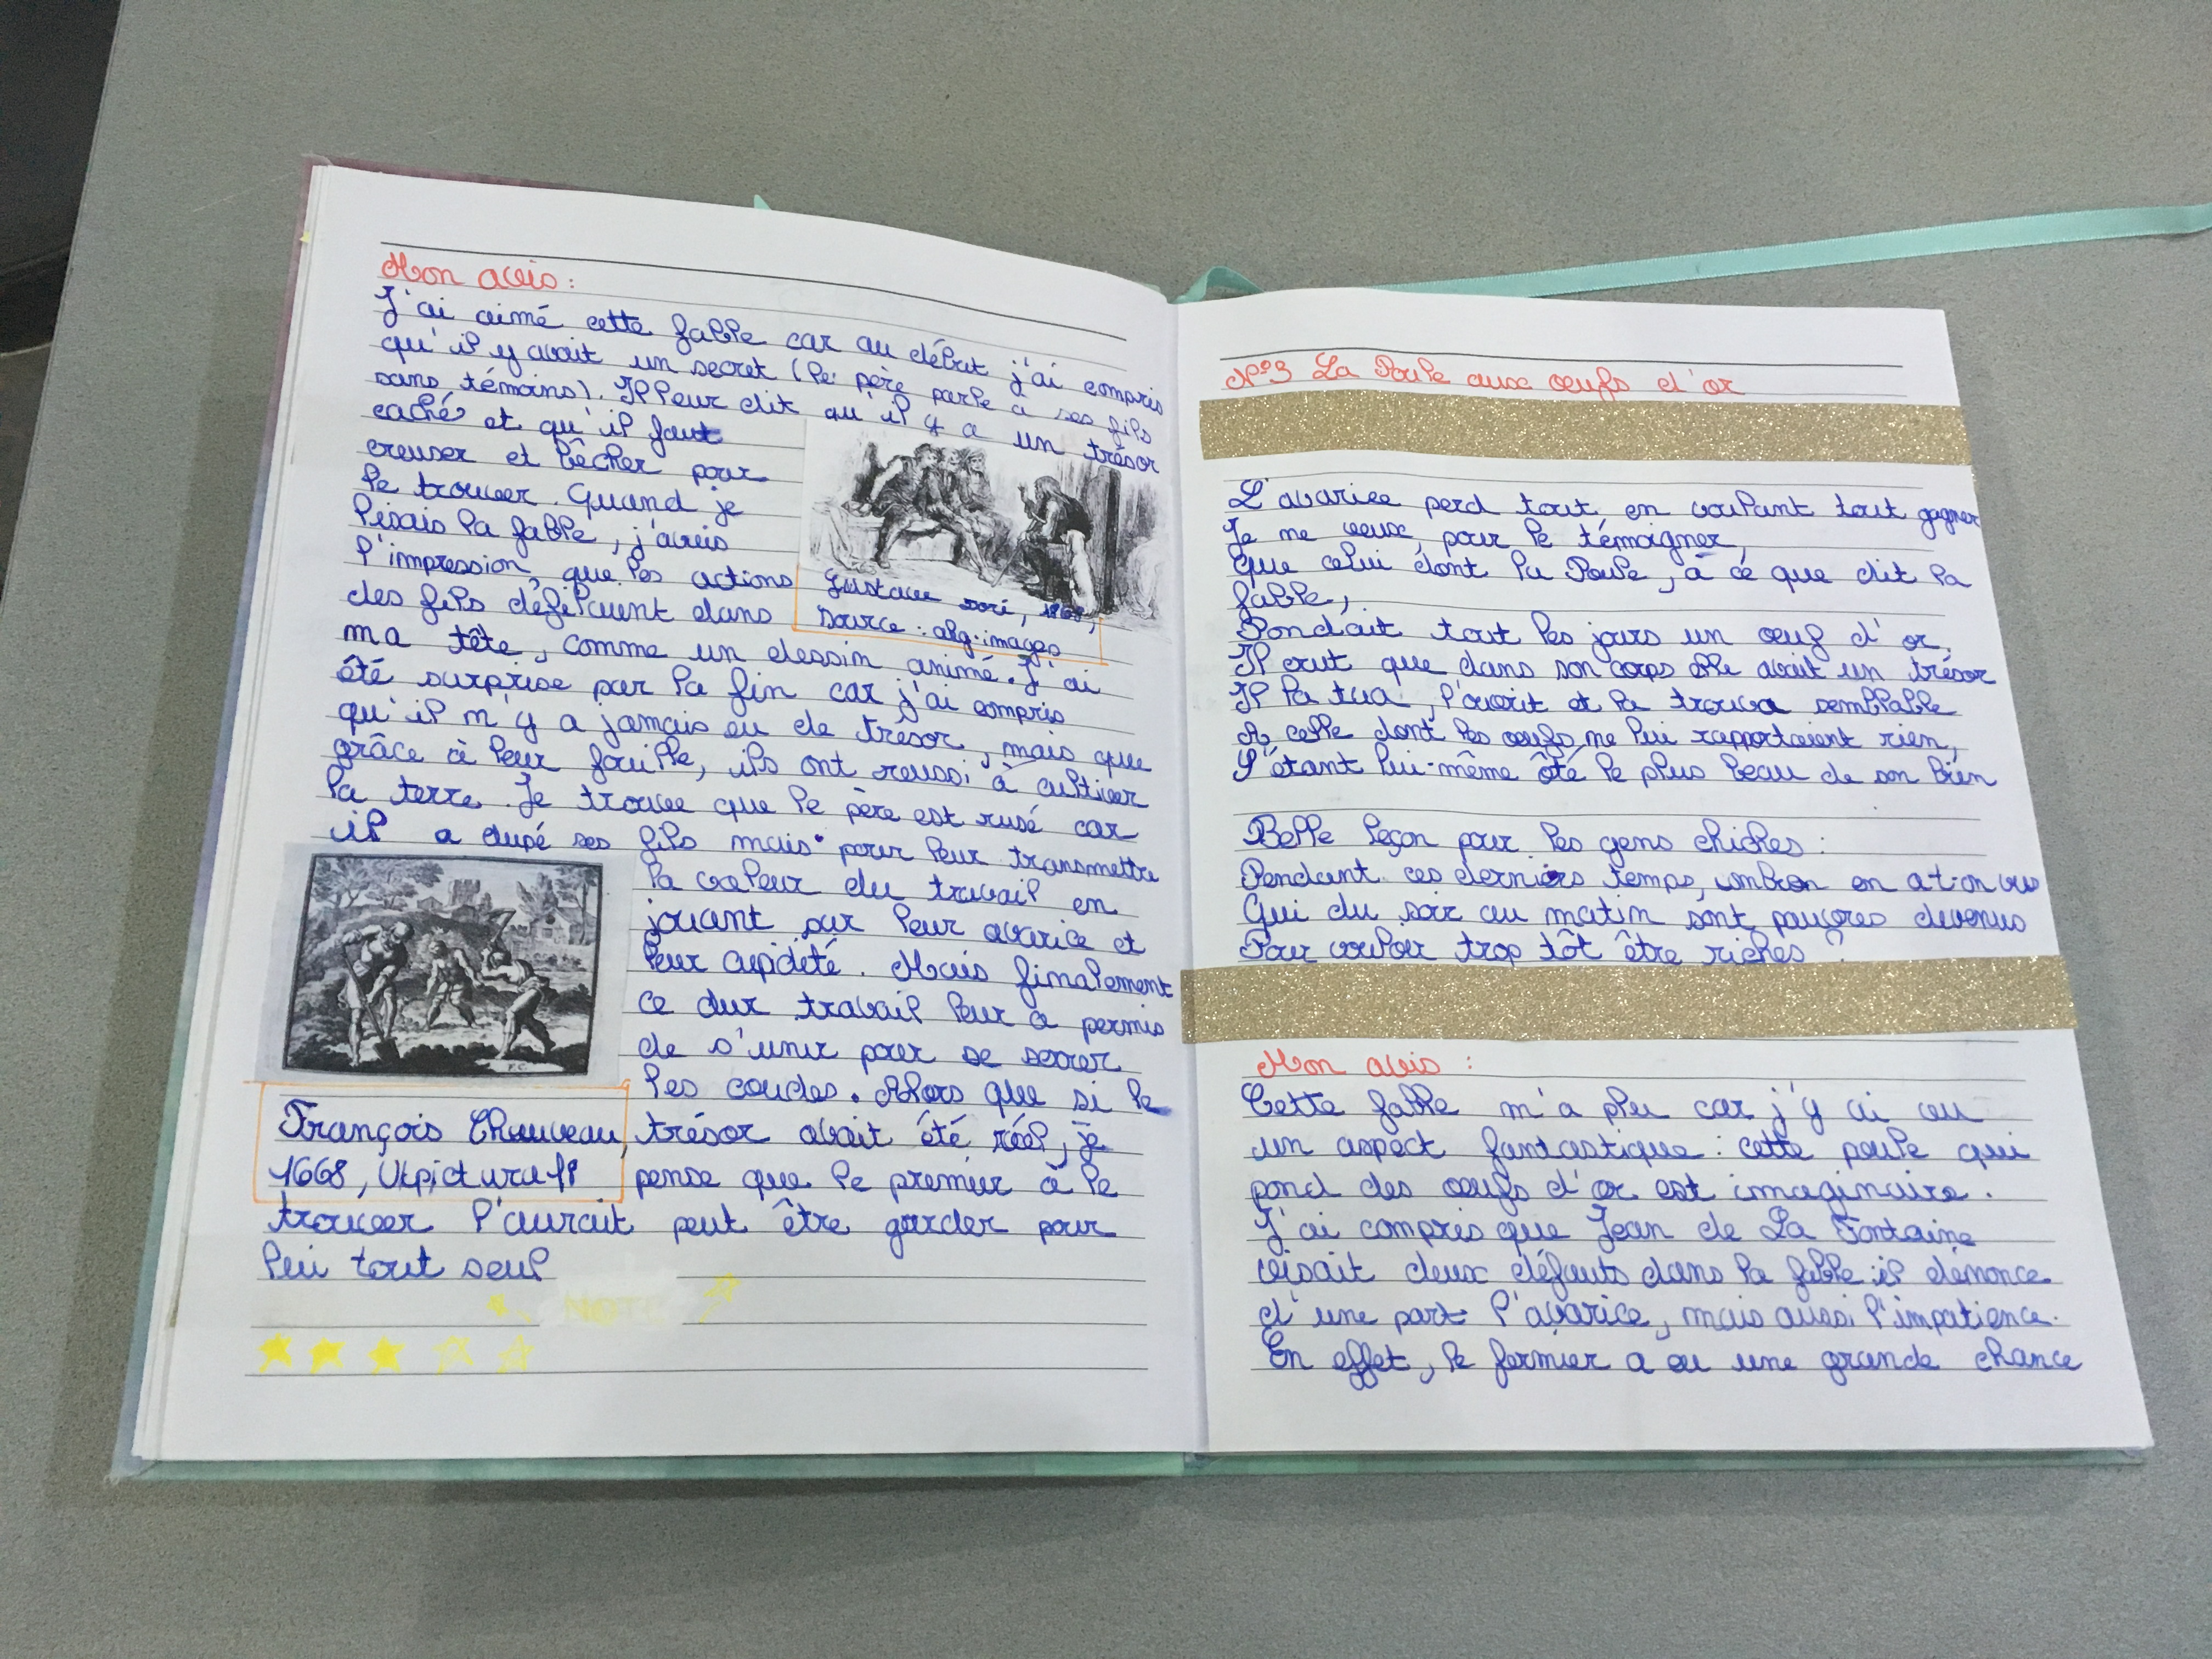 Mon avis :
J'ai aimé cette fable car au début j'ai compris
qu'il y avait un secret (le père parle à ses fils
sans témoins). Il leur dit qu'il y a un trésor
caché et qu'il faut
creuser et bêcher pour
le trouver. Quand je
lisais la fable, j'avais
l'impression que les actions
des fils défilaient dans
ma tête, comme un dessin animé. J'ai
été surprise par la fin car j'ai compris
qu'il n'y a jamais eu de trésor, mais que
grâce à leur fouille, ils ont reussi à cultiver
la terre. Je trouve que le père est rusé car
il a dupé ses fils mais pour leur transmettre
la valeur du travail en
jouant sur leur avarice et
leur cupidité. Mais finalement
ce dur travail leur a permis
de s'unir pour se serrer
les coudes. Alors que si le
trésor avait été réel, je
pense que le premier à le
trouver l'aurait peut être garder pour
lui tout seul
Gustave Doré, 1868,
source : akg-images
François Chauveau,
1668, Utpictura18
NOTE
N°3 La Poule aux oeufs d'or
L'avarice perd tout en voulant tout gagner
Je ne veux, pour le témoigner,
Que celui dont la Poule, à ce que dit la
fable,
Pondait tout les jours un oeuf d'or.
Il crut que dans son corps elle avait un trésor
Il la tua, l'ouvrit et la trouva semblable
A celle dont les oeufs ne lui rapportaient rien,
S'étant lui-même ôté le plus beau de son bien
Belle leçon pour les gens chiches :
Pendant ces derniers temps, combien en a t-on vus
Qui du soir au matin sont pauvres devenus
Pour vouloir trop tôt être riches ?
Mon avis :
Cette fable m'a plu car j'y ai vu
un aspect fantastique : cette poule qui
pond des oeufs d'or est imaginaire.
J'ai compris que Jean de La Fontaine
visait deux défauts dans la fable il dénonce
d'une part l'avarice, mais aussi l'impatience.
En effet, le fermier a eu une grande chance